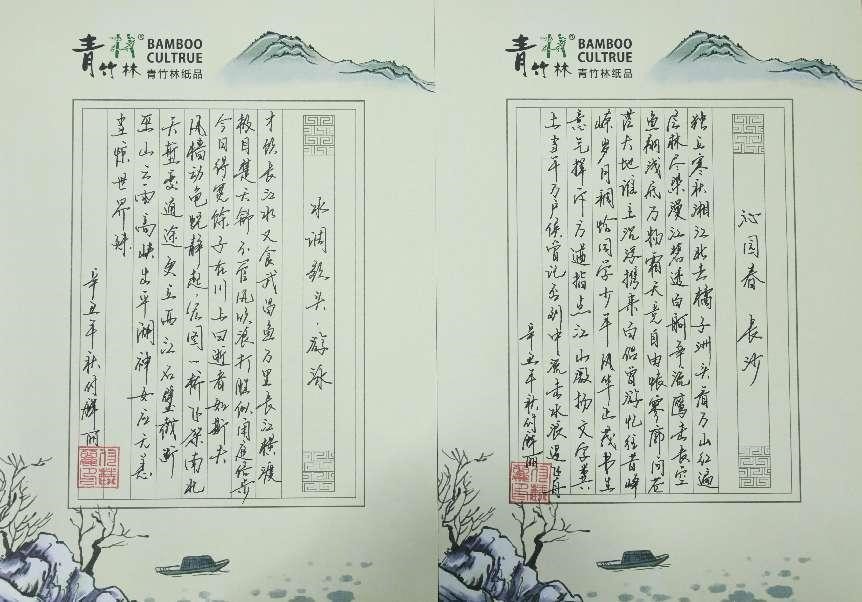 青竹林®
BAMBOO
CULTRUE
青竹林纸品
水调歌头·游泳
才饮长江水又食武昌鱼万里长江横渡
极目楚天舒不管风吹浪打胜似闲庭信步
今日得宽馀子在川上曰逝者如斯夫
风樯动龟蛇静起宏图一桥飞架南北
天堑变通途更立西江石壁截断
巫山云雨高峡出平湖神女应无恙
当惊世界殊
辛丑年秋付解丽
青竹林®
BAMBOO
CULTRUE
青竹林纸品
沁园春 长沙
独立寒秋湘江北去橘子洲头看万山红遍
层林尽染漫江碧透百舸争流鹰击长空
鱼翔浅底万物霜天竞自由怅寥廓问苍
茫大地谁主沉浮携来百侣曾游忆往昔峥
嵘岁月稠恰同学少年风华正茂书生
意气挥斥方遒指点江山激扬文字粪
土当年万户侯曾记否到中流击水浪遏飞舟
辛丑年秋付解丽